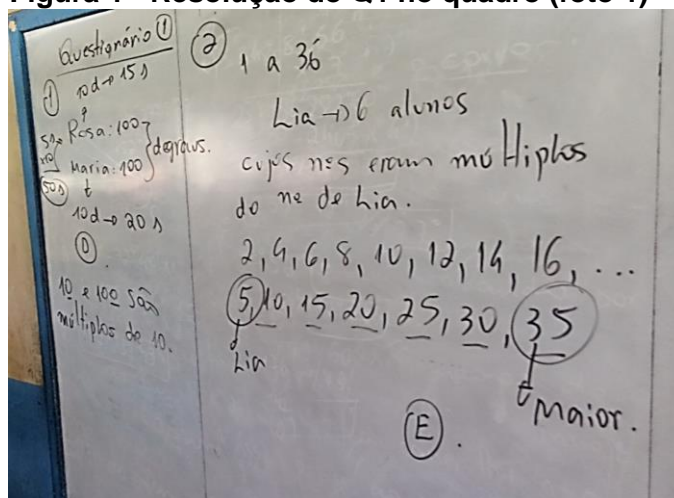 Figura 1 - Resolução do Q1 no quadro (foto 1)
Questionário ①
① 10d → 15s
Rosa: 100
Maria: 100
degraus.
50s
10d → 20s
Ⓓ
10 e 100 são
múltiplos de 10.
② 1 a 36
Lia → 6 alunos
cujos nºs eram múltiplos
do nº de Lia.
2, 4, 6, 8, 10, 12, 14, 16, ...
5, 10, 15, 20, 25, 30, 35
Lia
Maior.
Ⓔ.